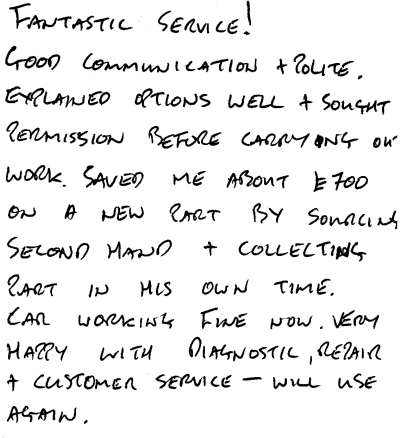 FANTASTIC SERVICE!
GOOD COMMUNICATION + POLITE.
EXPLAINED OPTIONS WELL + SOUGHT
PERMISSION BEFORE CARRYING OUT
WORK. SAVED ME ABOUT £700
ON A NEW PART BY SOURCING
SECOND HAND + COLLECTING
PART IN HIS OWN TIME.
CAR WORKING FINE NOW. VERY
HAPPY WITH DIAGNOSTIC, REPAIR
+ CUSTOMER SERVICE – WILL USE
AGAIN.